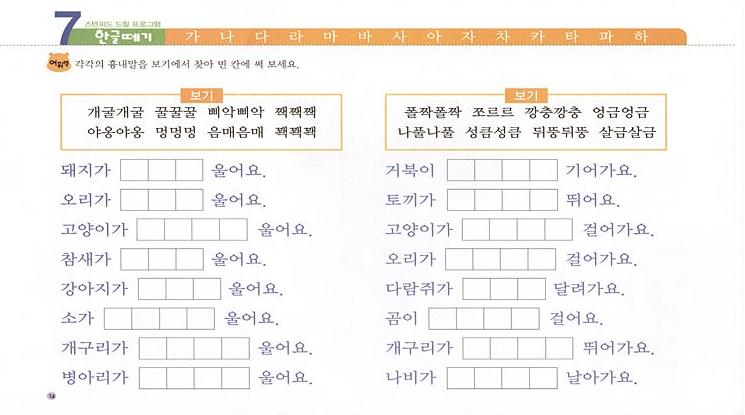 7
스텐퍼드 드릴 프로그램
한글떼기 가 나 다 라 마 바 사 아 자 차 카 타 파 하
어휘력 각각의 흉내말을 보기에서 찾아 빈 칸에 써 보세요.
보기
개굴개굴 꿀꿀꿀 삐악삐악 짹짹짹
야옹야옹 멍멍멍 음매음매 꽥꽥꽥
돼지가 울어요.
오리가 울어요.
고양이가 울어요.
참새가 울어요.
강아지가 울어요.
소가 울어요.
개구리가 울어요.
병아리가 울어요.
보기
폴짝폴짝 쪼르르 깡충깡충 엉금엉금
나풀나풀 성큼성큼 뒤뚱뒤뚱 살금살금
거북이 기어가요.
토끼가 뛰어요.
고양이가 걸어가요.
오리가 걸어가요.
다람쥐가 달려가요.
곰이 걸어요.
개구리가 뛰어가요.
나비가 날아가요.
14